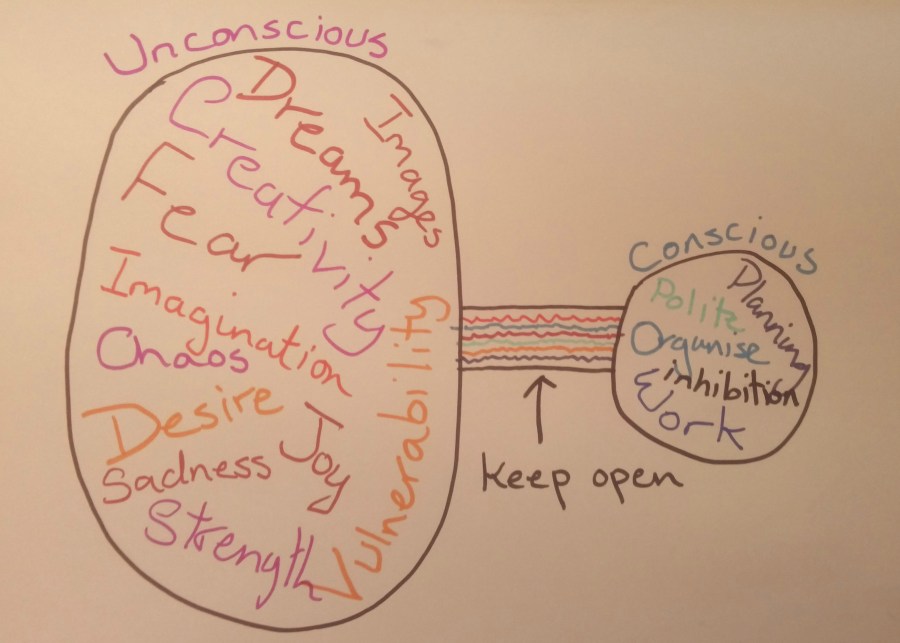 Unconscious
Dreams
Images
Creativity
Fear
Imagination
Chaos
Vulnerability
Desire
Joy
Sadness
Strength
Keep open
Conscious
Planning
Polite
Organise
inhibition
Work